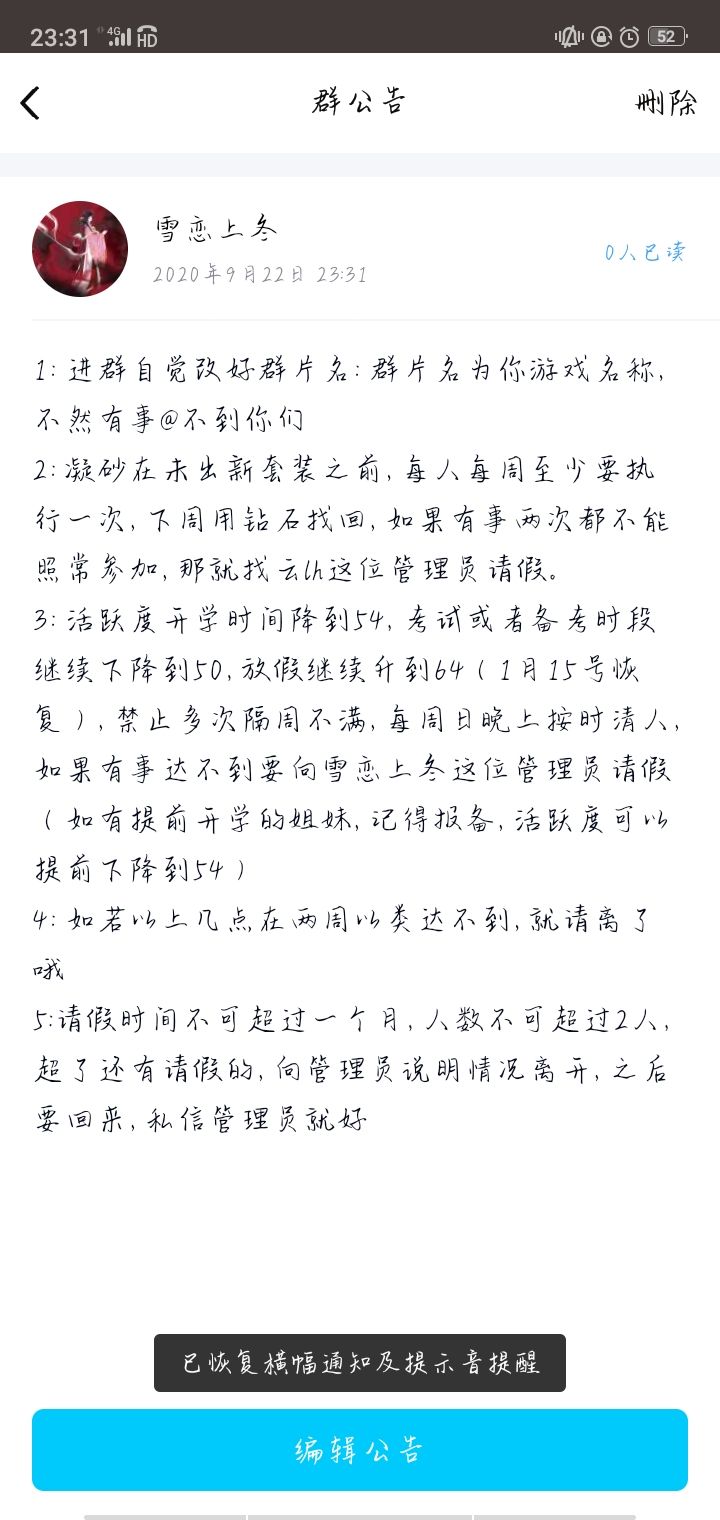 23:31 4G HD 52
群公告 删除
雪恋上冬
2020年9月22日 23:31 0人已读
1: 进群自觉改好群片名: 群片名为你游戏名称,
不然有事@不到你们
2:凝砂在未出新套装之前, 每人每周至少要执
行一次, 下周用钻石找回, 如果有事两次都不能
照常参加, 那就找云lh这位管理员请假。
3: 活跃度开学时间降到54, 考试或者备考时段
继续下降到50, 放假继续升到64 ( 1月15号恢
复 ), 禁止多次隔周不满, 每周日晚上按时清人,
如果有事达不到要向雪恋上冬这位管理员请假
( 如有提前开学的姐妹, 记得报备, 活跃度可以
提前下降到54 )
4: 如若以上几点在两周以类达不到, 就请离了
哦
5:请假时间不可超过一个月, 人数不可超过2人,
超了还有请假的, 向管理员说明情况离开, 之后
要回来, 私信管理员就好
已恢复横幅通知及提示音提醒
编辑公告